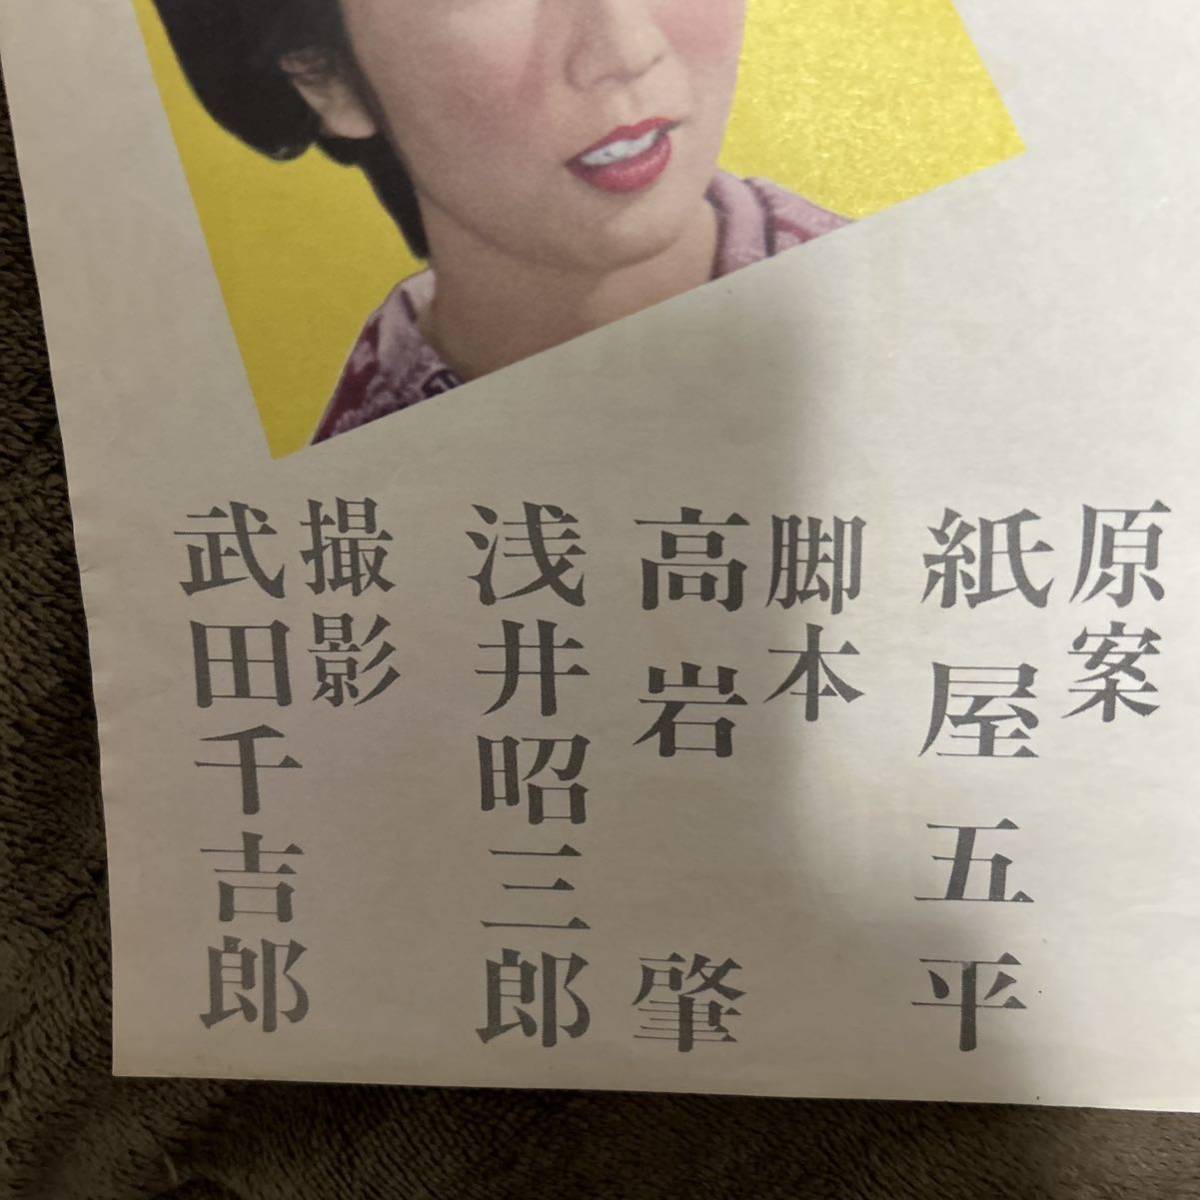 原案
紙屋五平
脚本
高岩肇
浅井昭三郎
撮影
武田千吉郎